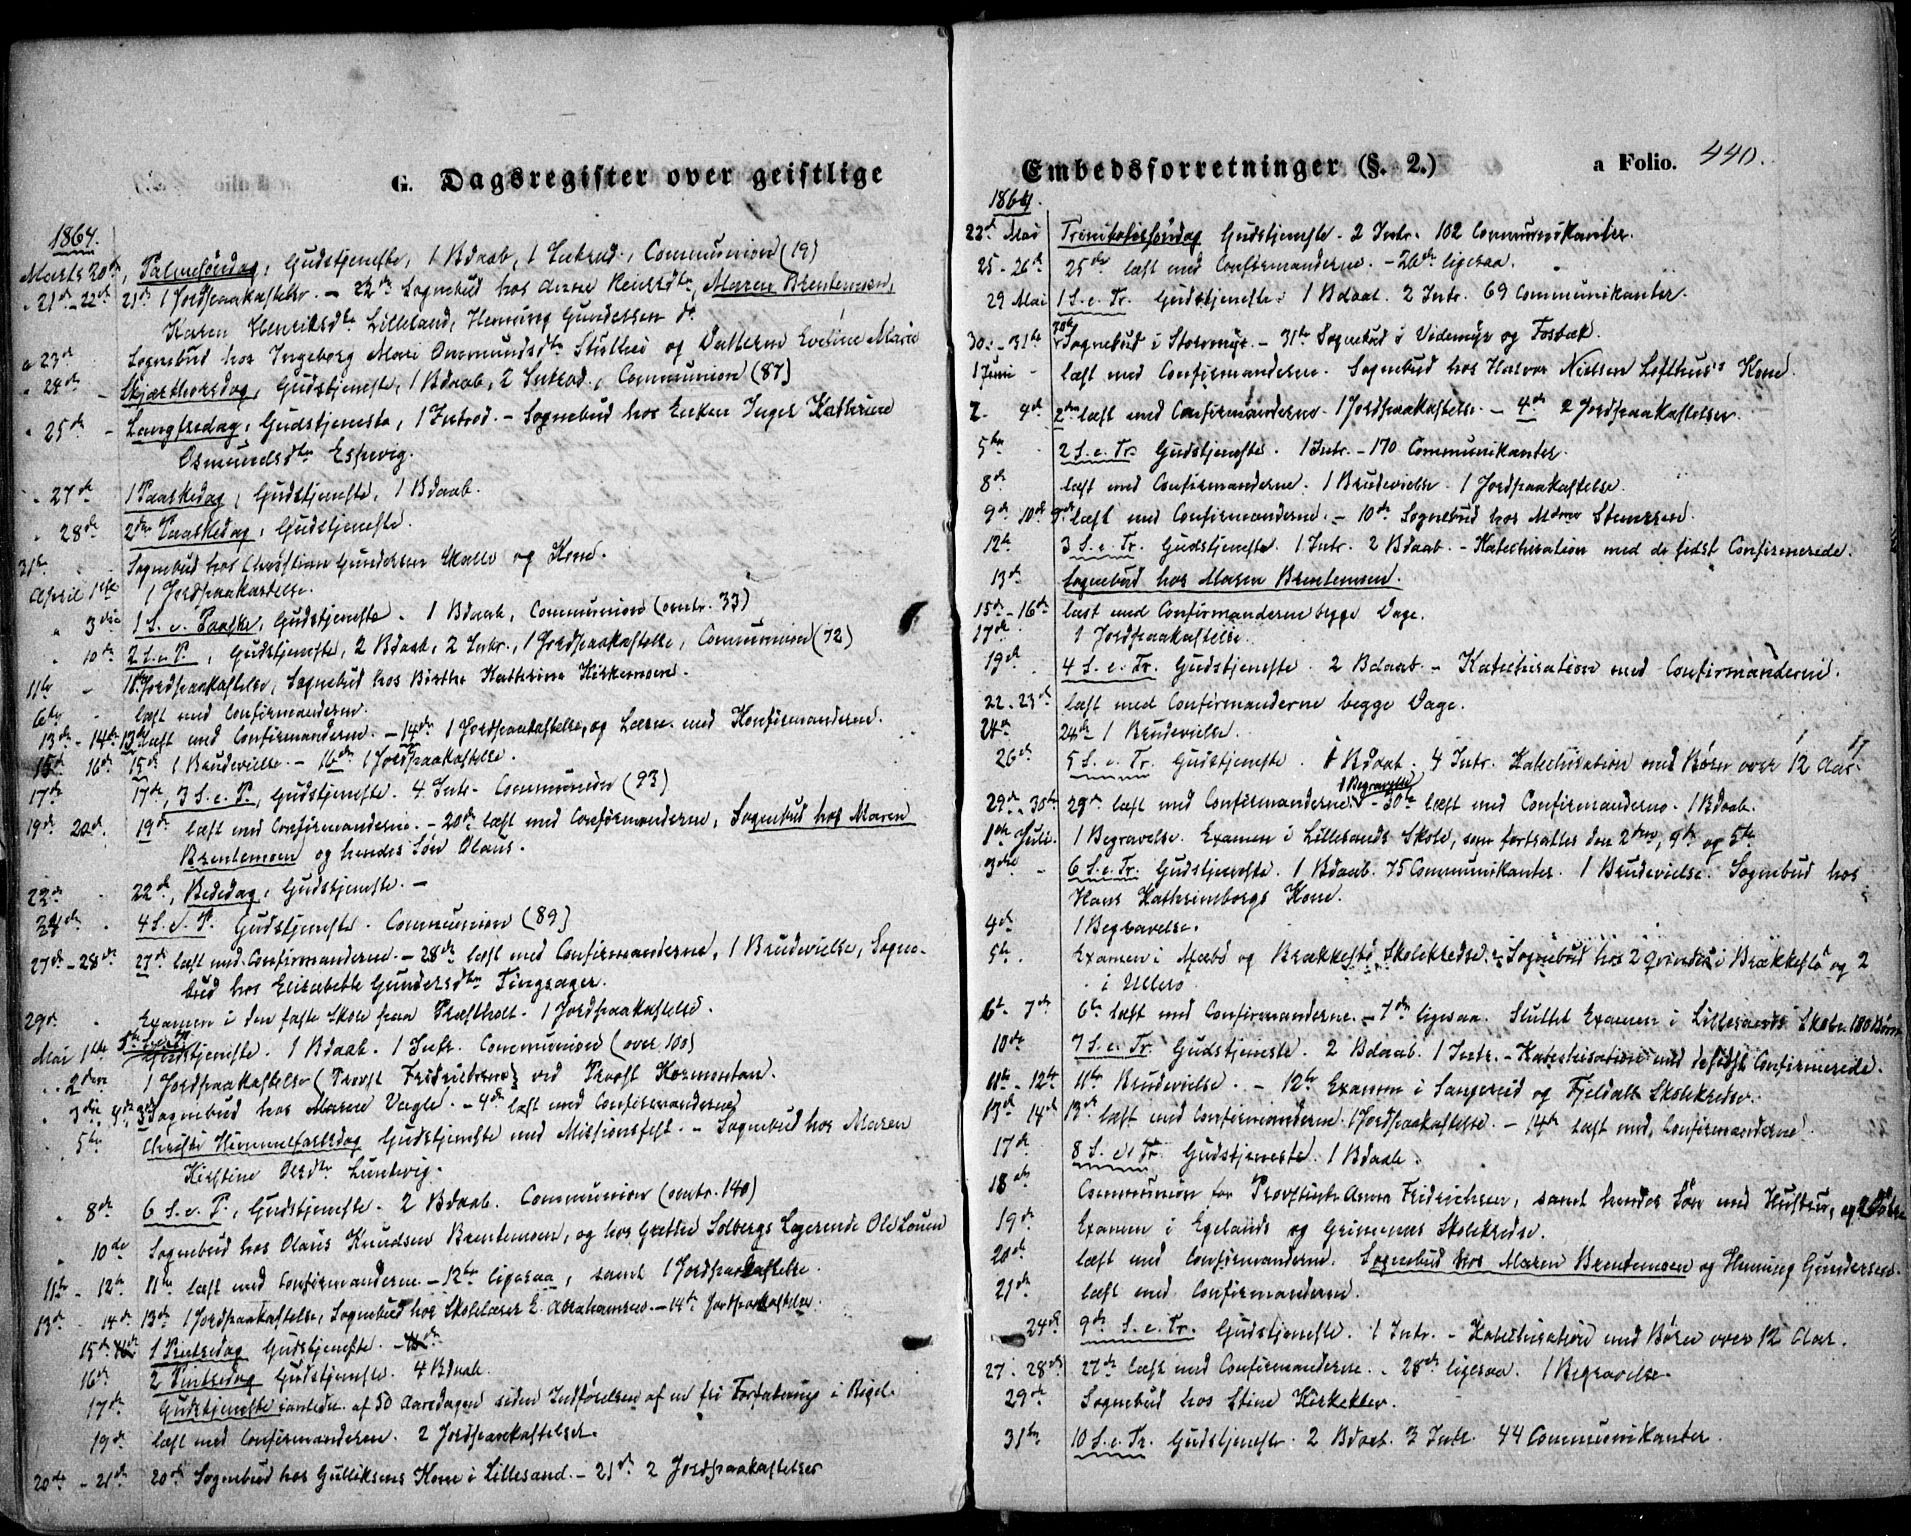 G. Dagsregister over geistlige
1864.
Marts 20de, Palmesöndag, Gudstjeneste, 1 Bdaab, 1 Introd., Communion (19)
" 21de-22de 21de 1 Jordpaakastelse. – 22de Sognebud hos, Maren Brentemoen,
Karen Henriksdtr Lilleland, Henning Gundersen
" 23de Sognebud hos Ingeborg Mari Ommundsdtr og Datteren Eveline Marie
" 24de – Skjærthorsdag, Gudstjeneste, 1 Bdaab, 2 Introd., Communion (87)
" 25de – Langfredag, Gudstjeneste, 1 Introd. – Sognebud hos Enken Inger Kathrine
Osmundsdtr Espevig.
" 27de 1 Paaskedag, Gudstjeneste, 1 Bdaab.
" 28de 2den Paaskedag, Gudstjeneste.
31te Sognebud hos Christian Gundersen og Kone.
April 1ste 1 Jordpaakastelse.
" 3die 1 S. e. Paaske, Gudstjeneste. 1 Bdaab, Communion (omtr. 33)
" 10de 2 S. e. P., Gudstjeneste, 2 Bdaab, 2 Intr., 1 Jordpaakastelse, Communion (72)
11te – 1 Jordpaakastelse, Sognebud hos Birthe Kathrine Kirkemoen.
6te læst med Confirmanderne.
13de - 14de 13de læst med Confirmanderne. – 14de 1 Jordpaakastelse, og Læsn. med Konfirmanderne.
15de 16de 15de 1 Brudevielse. – 16de 1 Jordpaakastelse.
17de 17de, 3 S. e. P., Gudstjeneste. 4 Intr. Communion (93)
19de 20de. 19de læst med Confirmanderne. – 20de læst med Confirmanderne, Sognebud hos Maren
Brentemoen og hendes Sön Olaus.
22de 22de, Bededag, Gudstjeneste. –
24de 4 S. e. P. Gudstjeneste. Communion (89)
27de - 28de 27de læst med Confirmanderne. – 28de læst med Confirmanderne, 1 Brudevielse, Sogne-
bud hos Elisabeth Gundersdtr Tingsager.
29de Examen i den faste Skole paa Præstholt. 1 Jordpaakastelse.
Mai 1ste Gudstjeneste. 1 Bdaab. 1 Intr. Communion (over 100)
" 2den 1 Jordpaakastelse (Provst) ved Provst
" 3die 4de 3die Sognebud hos Maren Vægle. – 4de læst med Confirmanderne
" 5te Christi Himmelfartsdag Gudstjeneste med Missionsfest. – Sognebud hos Maren
Kirstine Olsdtr Lundevig.
" 8de 6 S. e. P., Gudstjeneste. 2 Bdaab. Communion (omtr. 140)
" 10de Sognebud hos Olaus Knudsen Brentemoen, og hos Grethe Solbergs Logerende Ole
11te - 12te 11te læst med Confirmanderne – 12te ligesaa, samt 1 Jordpaakastelse.
13de - 14de 13de 1 Jordpaakastelse, Sognebud hos Skolelærer E. Abrahamsen. – 14de Jordpaakastelse.
15de 1 Pintsedag Gudstjeneste.
16de 2 Pintsedag Gudstjeneste. 4 Bdaab.
17de Gudstjeneste af 50 Aarsdagen siden Indförelsen af en fri Forfatning i Riget.
19de læst med Confirmanderne. 2 Jordpaakastelser.
20de - 21de 20de Sognebud hos Gulliksens Kone i Lillesand. – 21de 2 Jordpaakastelser
Embedsforretninger (§. 2.) a Folio. 440.
1864.
22de Mai Trinitatissöndag Gudstjeneste. 2 Intr. 102 Communikanter.
25 - 26de 25de læst med Confirmanderne. – 26de ligesaa.
29 Mai 1 S. e. Tr. Gudstjeneste. 1 Bdaab. 2 Intr. 69 Communikanter.
30. - 31te 30te Sognebud i Stormyr. – 31te Sognebud i Videmyr og Fosbæk.
1 Juni – læst med Confirmanderne. Sognebud hos Halvor Nielsen Lofthus's Kone.
2. 4de 2den læst med Confirmanderne. 1 Jordpaakastelse. – 4de 2 Jordpaakastelser.
5te 2 S. e. Tr. Gudstjeneste. 1 Intr. – 170 Communikanter.
8de læst med Confirmanderne. 1 Brudevielse. 1 Jordpaakastelse.
9de 10de 9de læst med Confirmanderne. – 10de Sognebud hos Steensen.
12te 3 S. e. Tr. Gudstjeneste. 1 Intr. 2 Bdaab. – Katechisation med de sidst Confirmerede.
13de Sognebud hos Maren Brentemoen.
15de - 16de læst med Confirmanderne begge Dage.
17de 1 Jordpaakastelse.
19de 4 S. e. Tr. Gudstjeneste. 2 Bdaab – Katechisation med Confirmanderne.
22. 23de læst med Confirmanderne begge Dage.
24de 24de 1 Brudevielse.
26de 5 S. e. Tr. Gudstjeneste. 1 Bdaab. 4 Intr. Katechisation med Börn over 12 Aar.
1 Begravelse
29de 30te 29de læst med Confirmanderne. – 30te læst med Confirmanderne. 1 Bdaab.
1ste Juli. 1 Begravelse. Examen i Lillesands Skole, som fortsattes den 2den, 4de og 5te
3die – 6 S. e. Tr. Gudstjeneste. 1 Bdaab. 75 Communikanter. 1 Brudevielse. Sognebud hos
Hans Kathrineborgs Kone.
4de 1 Begravelse.
5te. Examen i Mæbö og Brækkestö Skolekredse. – Sognebud hos 2 Qvinder i Brækkestö og 2
i Ullerö
6te 7de 6te læst med Confirmanderne. – 7de ligesaa. Sluttet Examen i Lillesands Skole. 180 Börn
10de 7 S. e. Tr. Gudstjeneste. 2 Bdaab. 1 Intr. – Katechisation med de sidst Confirmerede.
11te - 12te 11te Brudevielse. – 12te Examen i Sangereid og Fjeldals Skolekredse.
13de 14de 13de læst med Confirmanderne. 1 Jordpaakastelse. – 14de læst med Confirmanderne.
17de 8 S. e. Tr. Gudstjeneste. 1 Bdaab.
18de Communion for Anna Fridrichsen, samt hendes Sön med Hustru, og 2 Dötre
19de Examen i Egelands og Grimenes Skolekredse.
20de læst med Confirmanderne. Sognebud hos Maren Brentemoen og Henning Gundersen.
21de læst med Confirmanderne.
24de 9de S. e. Tr. Gudstjeneste. 1 Intr. – Katechisation med Börn over 12 Aar.
27. 28de 27de læst med Confirmanderne. – 28de ligesaa. 1 Begravelse.
29de Sognebud hos Stine
31te 10 S. e. Tr. Gudstjeneste. 2 Bdaab. 3 Intr. 44 Communikanter.